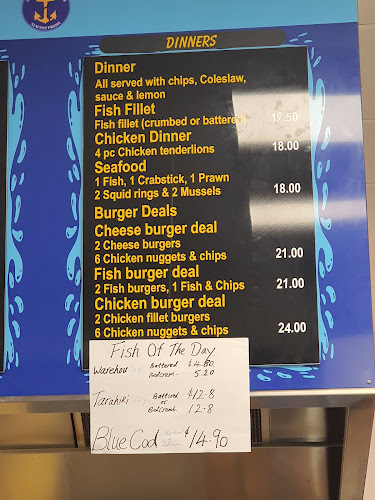 ALWAYS FRESH
DINNERS
Dinner
All served with chips, Coleslaw,
sauce & lemon
Fish Fillet
Fish fillet (crumbed or battered) 19.50
Chicken Dinner
4 pc Chicken tenderlions 18.00
Seafood
1 Fish, 1 Crabstick, 1 Prawn
2 Squid rings & 2 Mussels 18.00
Burger Deals
Cheese burger deal
2 Cheese burgers
6 Chicken nuggets & chips 21.00
Fish burger deal
2 Fish burgers, 1 Fish & Chips 21.00
Chicken burger deal
2 Chicken fillet burgers
6 Chicken nuggets & chips 24.00
Fish Of The Day
Warehou Battered $4.80
Bedcram - 5.20
Tarahiki Battered $12.8
or
Bedcramb 12.8
Blue Cod $14.90